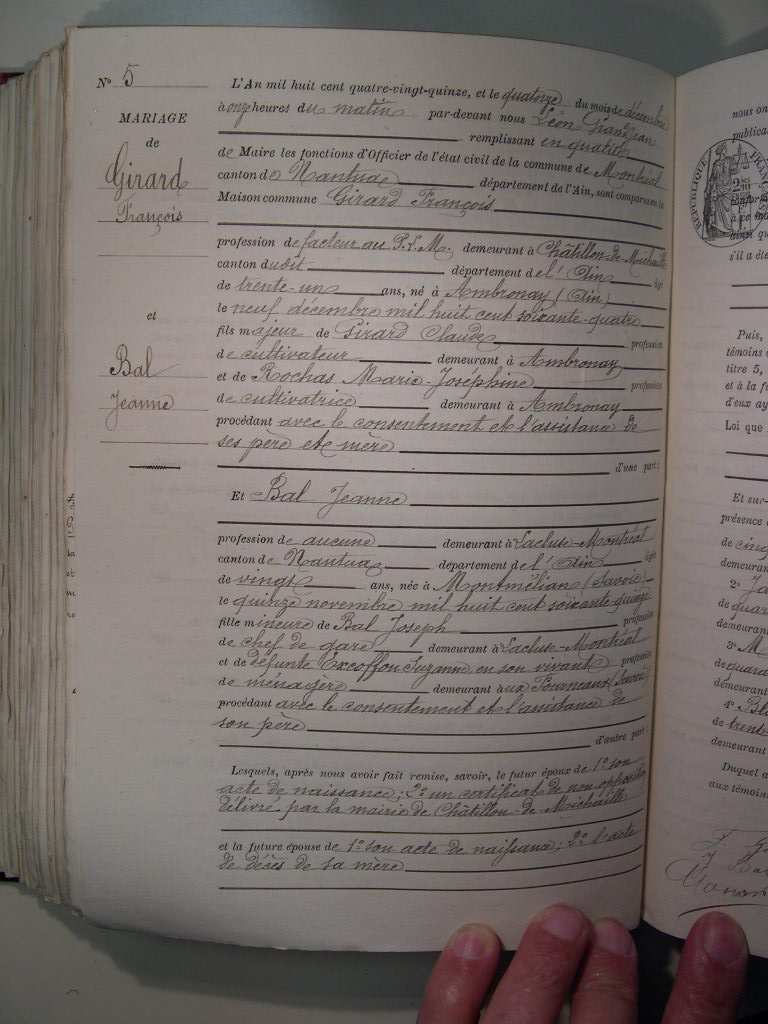 No 5
MARIAGE
de
Girard
François
et
Bal
Jeanne
L'An mil huit cent quatre-vingt-quinze, et le quatorze du mois de décembre
à onze heures du matin par-devant nous Léon Grandjean
remplissant en qualité
de Maire les fonctions d'Officier de l'état civil de la commune de Montréal
canton de Nantua département de l'Ain, sont comparus en la
Maison commune Girard François
profession de facteur au P.L.M. demeurant à Châtillon-de-Michaille
canton dudit département de l'Ain âgé
de trente-un ans, né à Ambronay (Ain)
le neuf décembre mil huit cent soixante-quatre
fils majeur de Girard Claude, profession
de cultivateur demeurant à Ambronay
et de Rochas Marie-Joséphine profession
de cultivatrice demeurant à Ambronay
procédant avec le consentement et l'assistance de
ses père et mère
d'une part;
Et Bal Jeanne
profession de aucune demeurant à Lacluse-Montréal
canton de Nantua département de l'Ain âgée
de vingt ans, née à Montmélian (Savoie)
le quinze novembre mil huit cent soixante-quinze
fille mineure de Bal Joseph profession
de chef de gare demeurant à Lacluse-Montréal
et de défunte Excoffon Suzanne en son vivant profession
de ménagère demeurant aux Fourneaux (Savoie)
procédant avec le consentement et l'assistance de
son père
d'autre part;
Lesquels, après nous avoir fait remise, savoir, le futur époux de 1° son
acte de naissance; 2° un certificat de non opposition
délivré par la mairie de Châtillon-de-Michaille
et la future épouse de 1° son acte de naissance; 2° l'acte
de décès de sa mère
nous on
publica
REPUBLIQUE FRANÇAISE
conform
à ce ma
ainsi qu
s'il a été
Puis,
témoins
titre 5,
et à la f
d'eux ay
Loi que
Et sur-
présence
de cinq
demeuran
2° Ja
de quar
demeuran
3° M
de quara
demeurant
4° Bl
de trent
demeurant
Duquel a
aux témoin